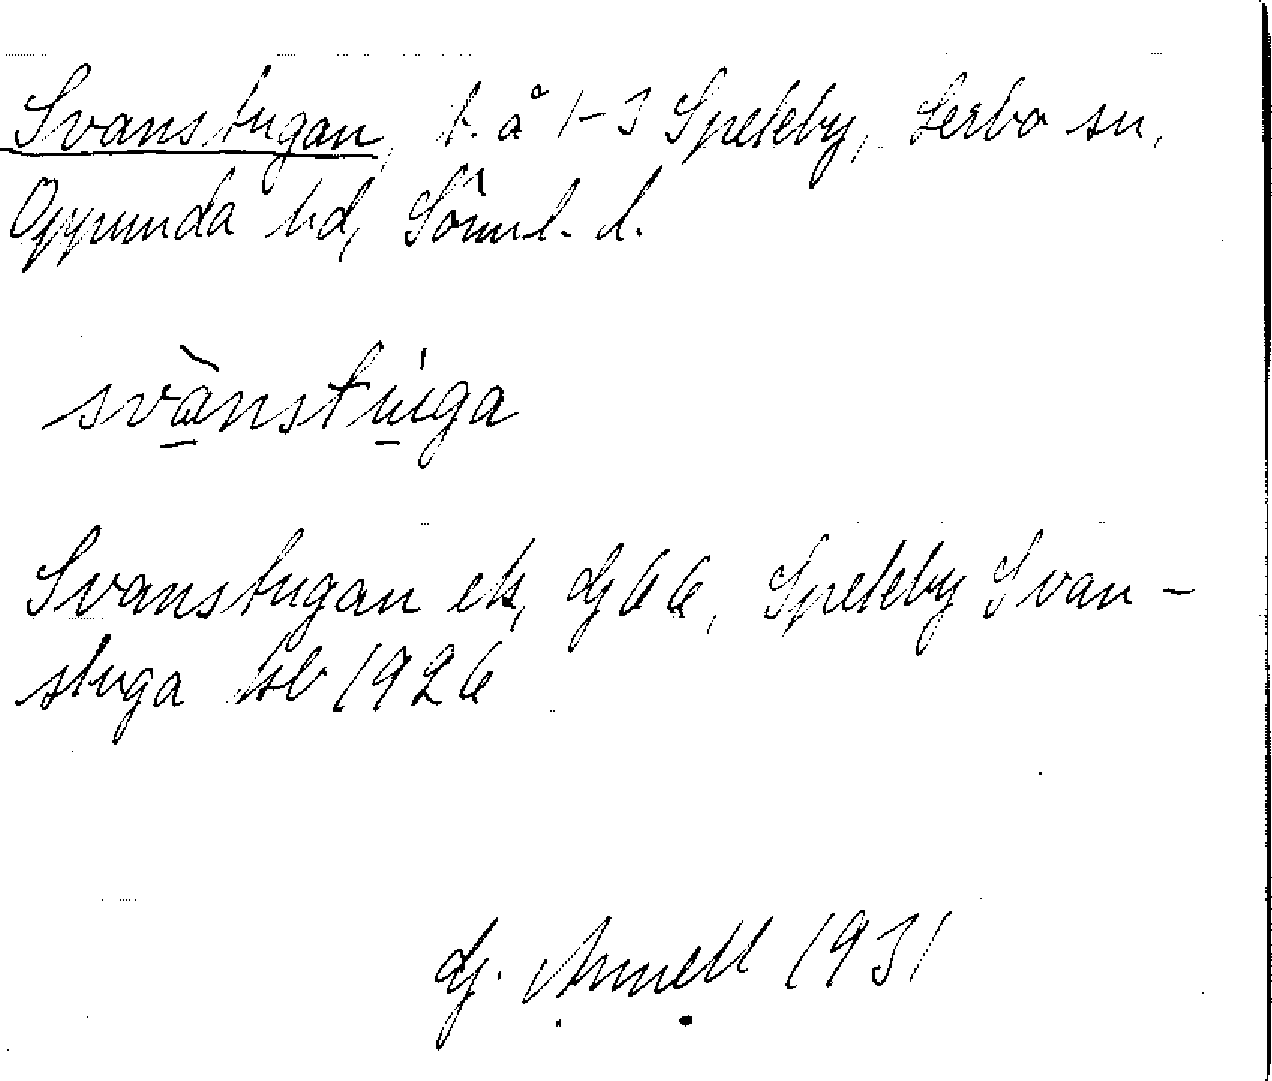 Svanstugan, t. å 1-3 Spekeby, Lerbo sn,
Oppunda hd, Söml. l.
svànstúga
Svanstugan ek, dj 66, Spekeby Svan-
stuga hb 1926
dj. Arnell 1931